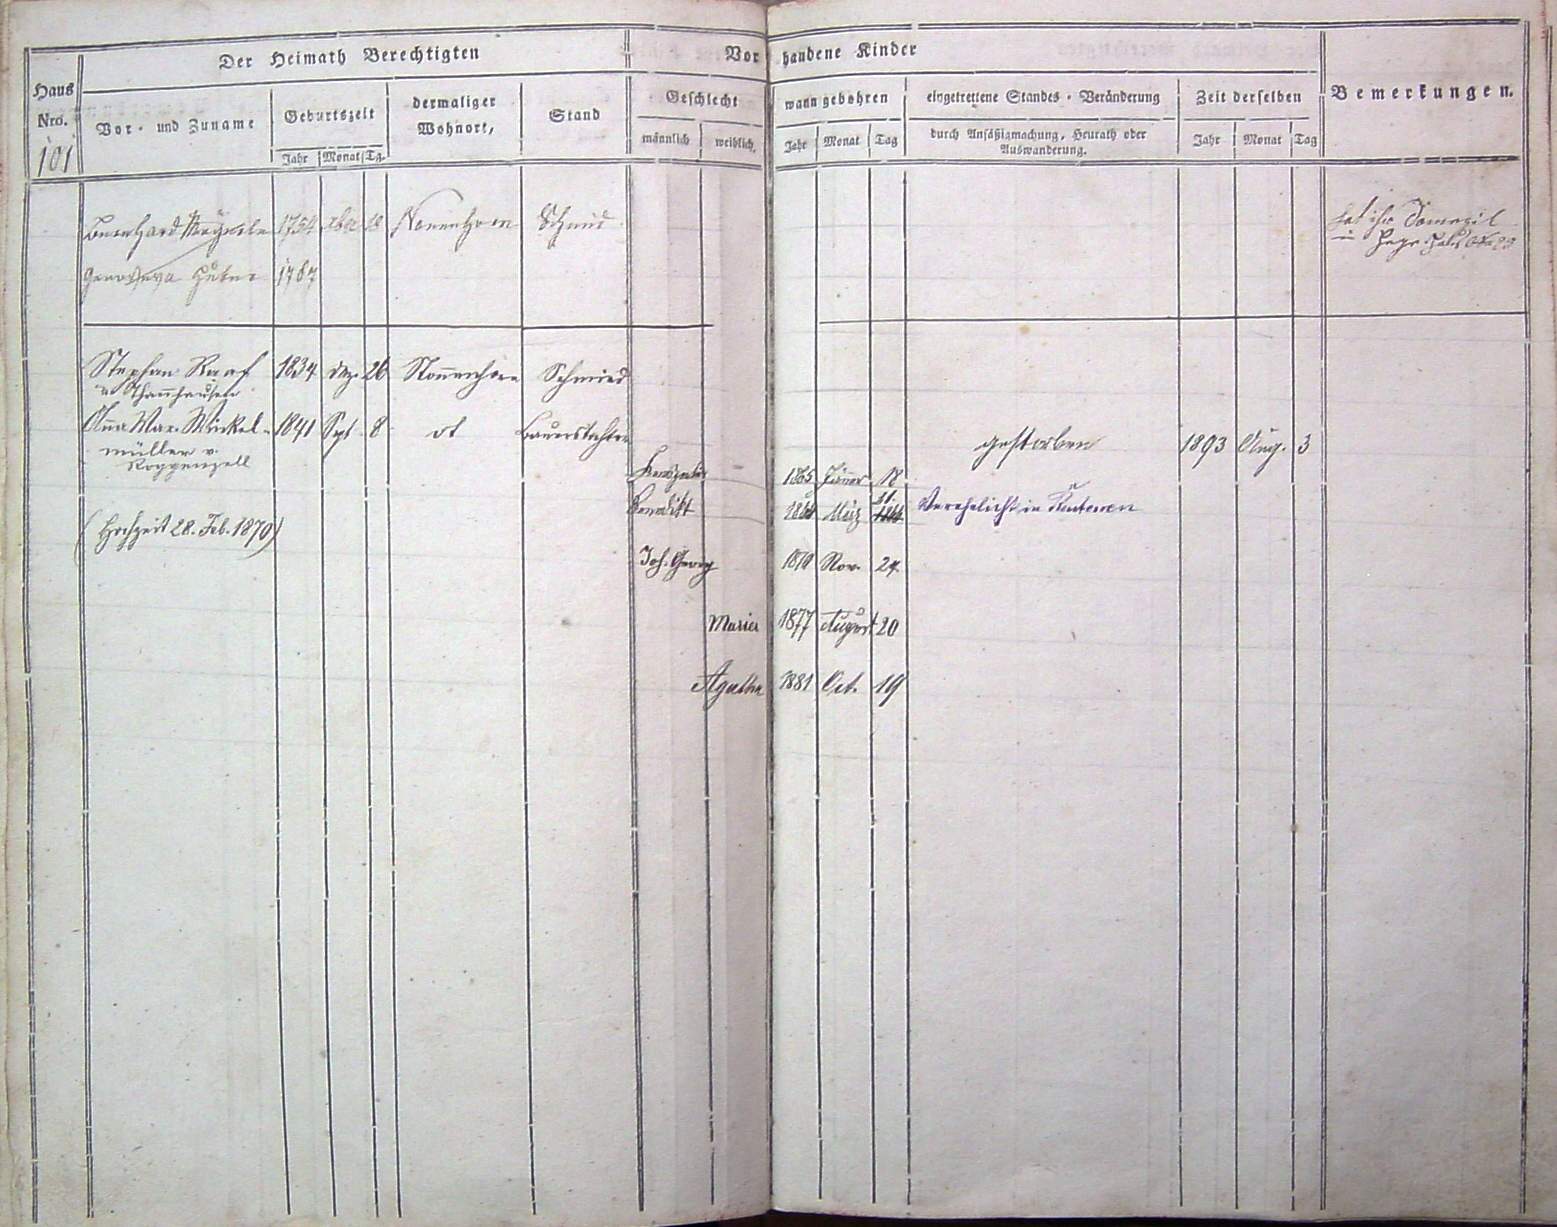 Der Heimath Berechtigten
Vorhandene Kinder
Haus Nro.
Vor- und Zuname
Geburtszeit
dermaliger Wohnort,
Stand
Geschlecht
wann gebohren
eingetrettene Standes-Veränderung
Zeit derselben
Bemerkungen.
männlich
weiblich,
durch Ansäßigmachung, Heurath oder
Auswanderung.
Jahr Monat Tg.
Jahr Monat Tag
Jahr Monat Tag
101
Bernhard 1754 18 Nonnenhorn Schmid
hat ihr Domizil
in
Genoveva Huber 1787
Stephan 1834 Dez. 26 Nonnenhorn Schmied
v. Thannhausen
Anna Mar. Winkel- 1841 Sept 8 dt Bauerstochter
gestorben 1893 Aug. 3
müller v.
Roggenzell
1865 Jäner 18
Benedikt März 31. Verehelicht in
(Hochzeit 28. Feb. 1870)
Joh. Georg Nov. 24.
Maria 1877 August 20
Agatha 1881 Oct. 19